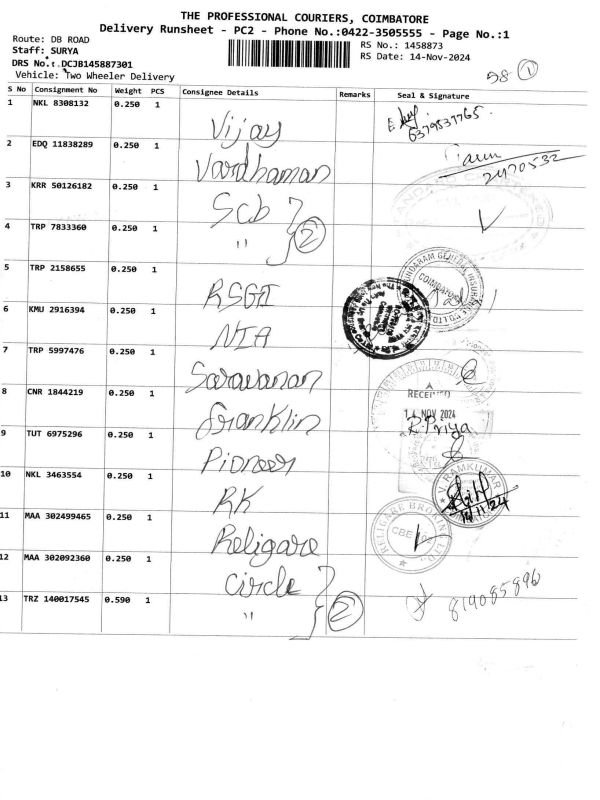 THE PROFESSIONAL COURIERS, COIMBATORE
Delivery Runsheet - PC2 - Phone No.:0422-3505555 - Page No.:1
Route: DB ROAD
RS No.: 1458873
Staff: SURYA
RS Date: 14-Nov-2024
DRS No.: DCJB145887301
Vehicle: Two Wheeler Delivery
58 1
S No Consignment No Weight PCS Consignee Details Remarks Seal & Signature
1 NKL 8308132 0.250 1 Vijay
6379537765
2 EDQ 11838289 0.250 1 Vardhaman
2470532
3 KRR 50126182 0.250 1 Scb
4 TRP 7833360 0.250 1 " 2
5 TRP 2158655 0.250 1 RSGI
COIMBATORE
6 KMU 2916394 0.250 1 NIA
7 TRP 5997476 0.250 1 Saravanan
8 CNR 1844219 0.250 1 Franklin
RECEIVED
14 NOV 2024
R. Priya
9 TUT 6975296 0.250 1 Pioneer
10 NKL 3463554 0.250 1 RK
V. RAMKUMAR
11 MAA 302499465 0.250 1 Religare
RELIGARE BROKING LTD
CBE
12 MAA 302092360 0.250 1 Circle
13 TRZ 140017545 0.590 1 " 2
819085896